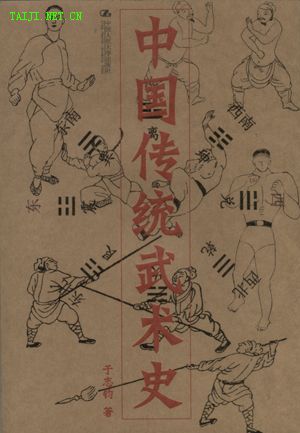 TAIJI.NET.CN
中国传统武术史
东南
离
西南
东
西
兑
西北
于志钧 著